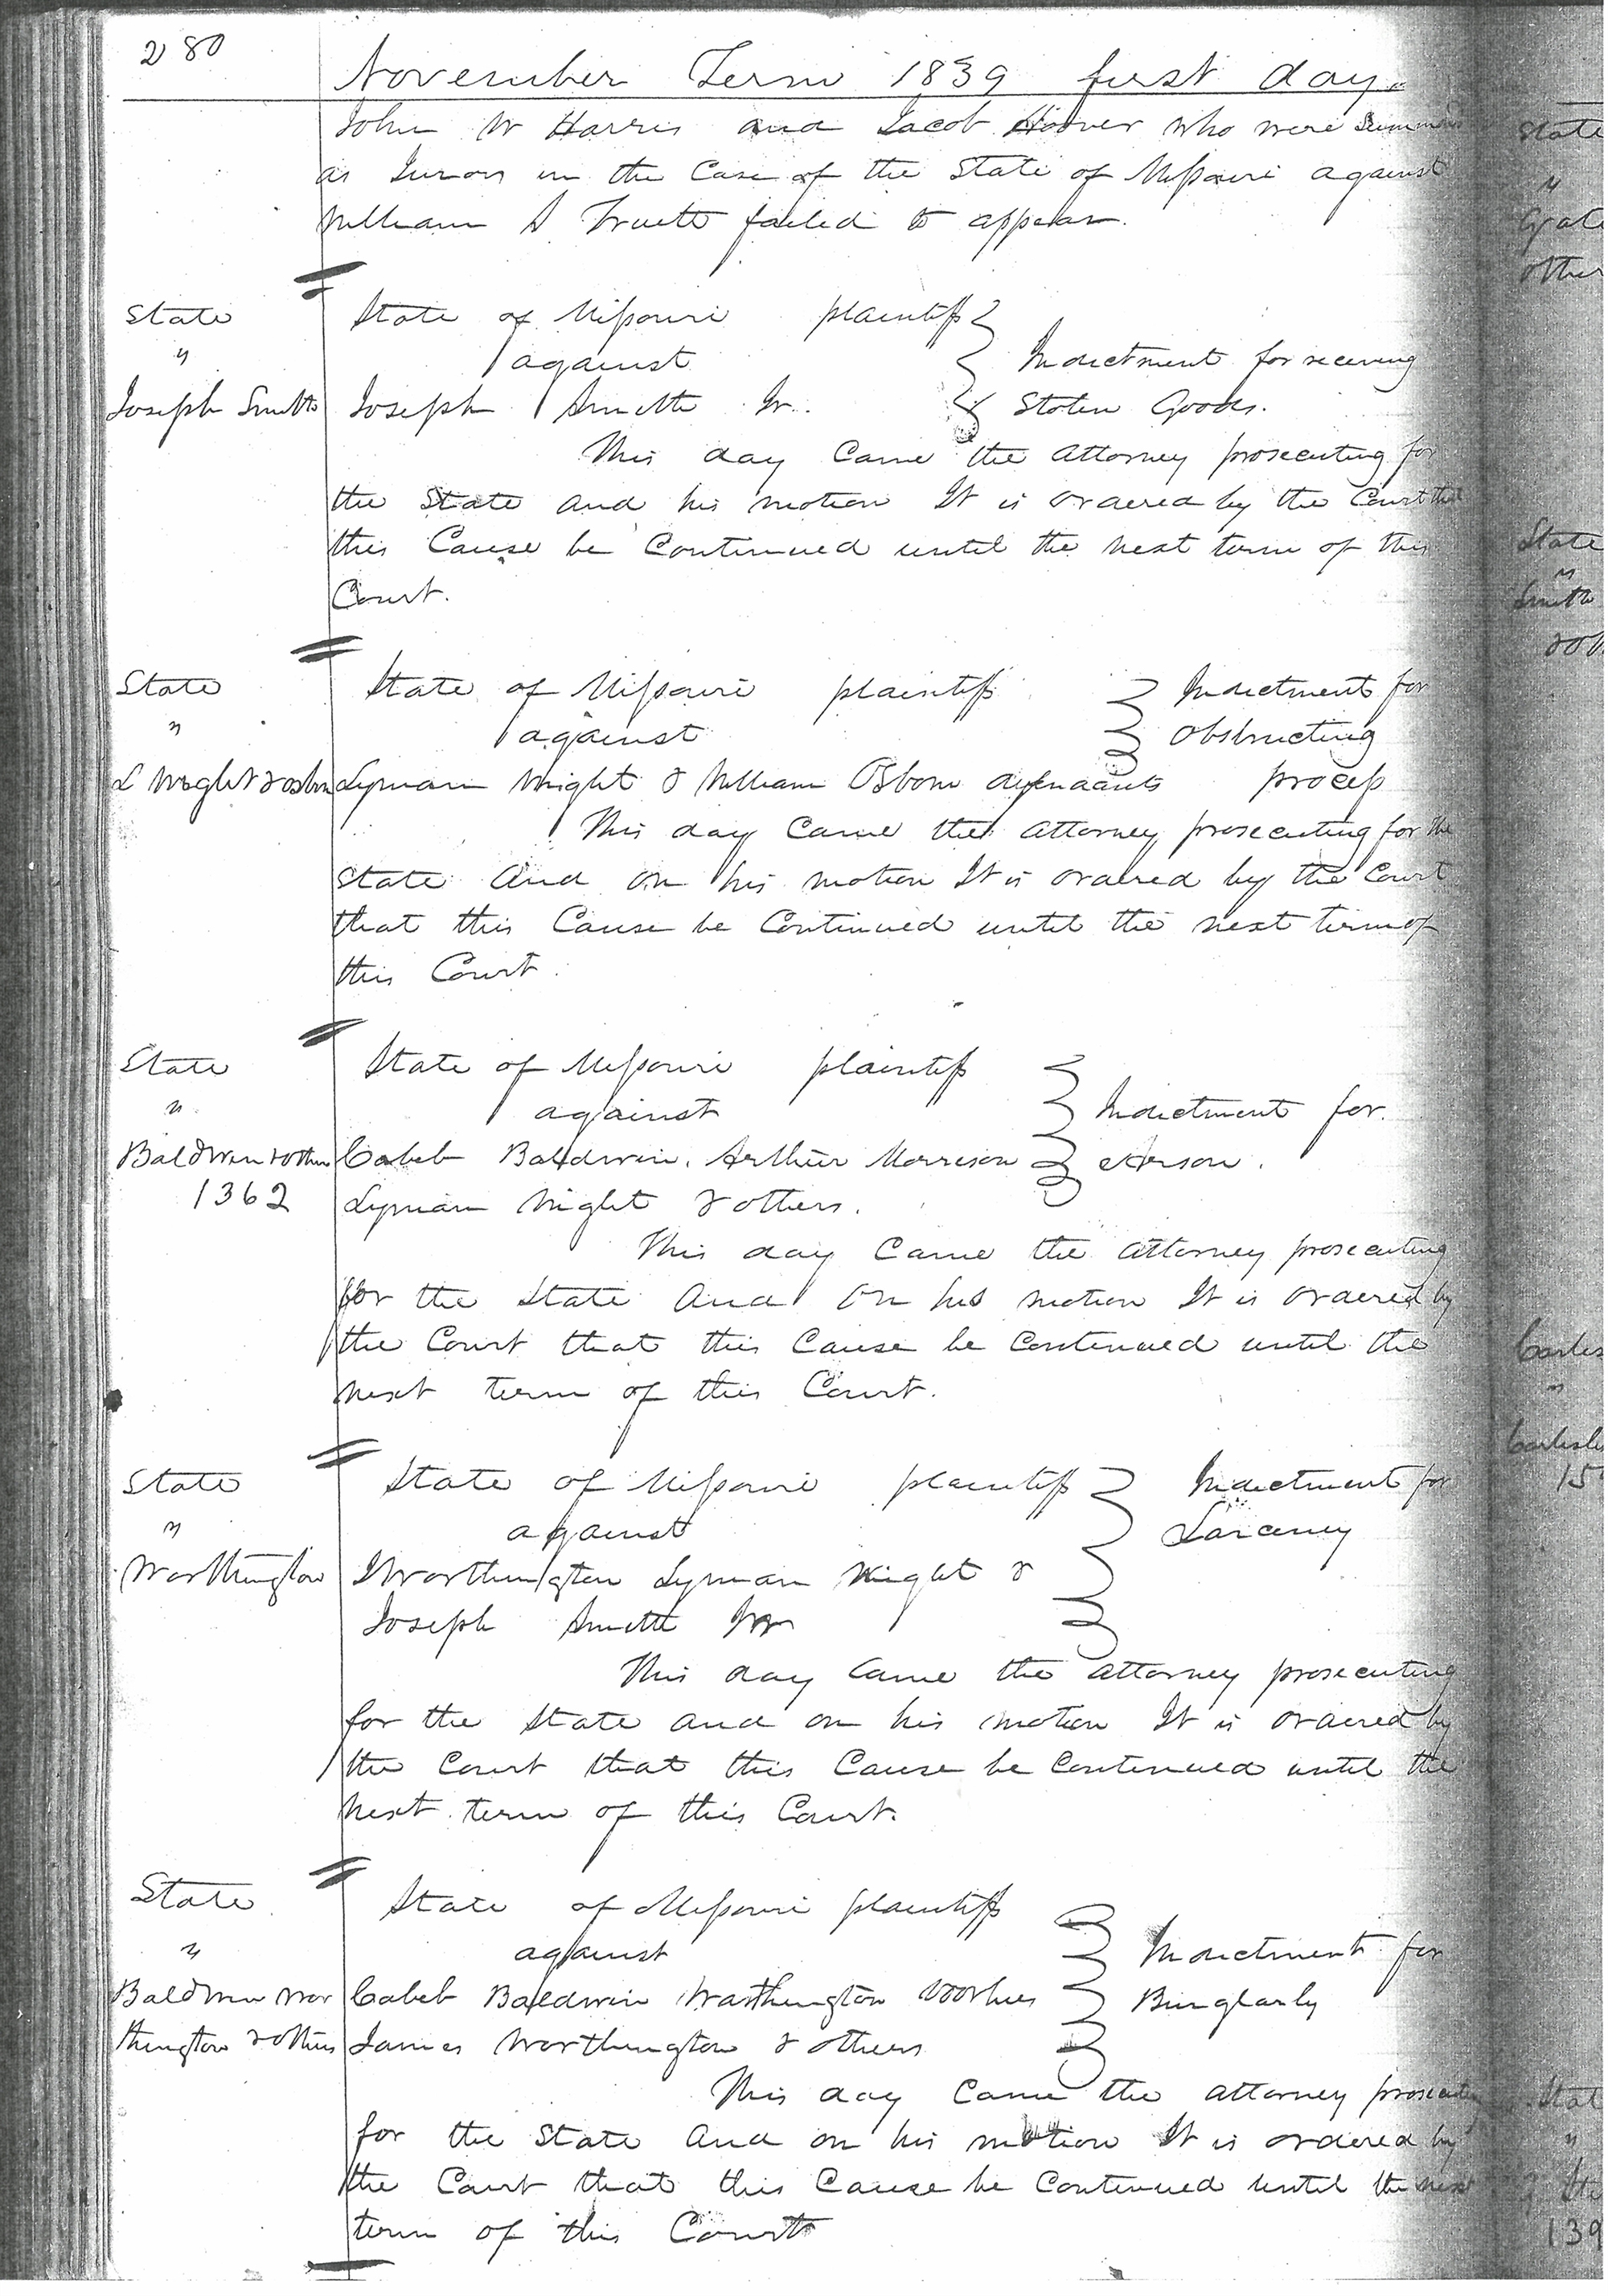 280
November Term 1839 first day.
John W Harris and Jacob Hoover who were
as Jurors in the Case of the State of Missouri against
William S Truett failed to appear.
State
"
Joseph Smith
State of Missouri plaintiff
against
Joseph Smith Jr.
Indictment for receiving
Stolen Goods.
This day Came the attorney prosecuting for
the State and his motion It is ordered by the Court that
this Cause be Continued until the next term of this
Court.
State
"
L Wight & osbn
State of Missouri plaintiff
against
Lyman Wight & William Osborn defendants
Indictment for
Obstructing
process
This day Came the attorney prosecuting for the
State And on his motion It is ordered by the Court
that this Cause be Continued until the next term of
this Court.
State
"
Baldwin & others
1362
State of Missouri plaintiff
against
Caleb Baldwin, Arthur Morrison
Lyman Wight & others.
Indictment for
Arson.
This day Came the attorney prosecuting
for the State And on his motion It is ordered by
the Court that this Cause be Continued until the
next term of this Court.
State
"
Worthington
State of Missouri plaintiff
against
J Worthington Lyman Wight &
Joseph Smith Jr
Indictment for
Larceny
This day Came the attorney prosecuting
for the State and on his motion It is ordered by
the Court that this Cause be Continued until the
next term of this Court.
State
"
Baldwin Wor
thington & others
State of Missouri plaintiff
against
Caleb Baldwin Worthington Voorhees
James Worthington & others
Indictment for
Burglarly
This day Came the attorney prosecuting
for the State And on his motion It is ordered by
the Court that this Cause be Continued until the next
term of this Court
State
"
other
State
"
Smith
"
15
"
139